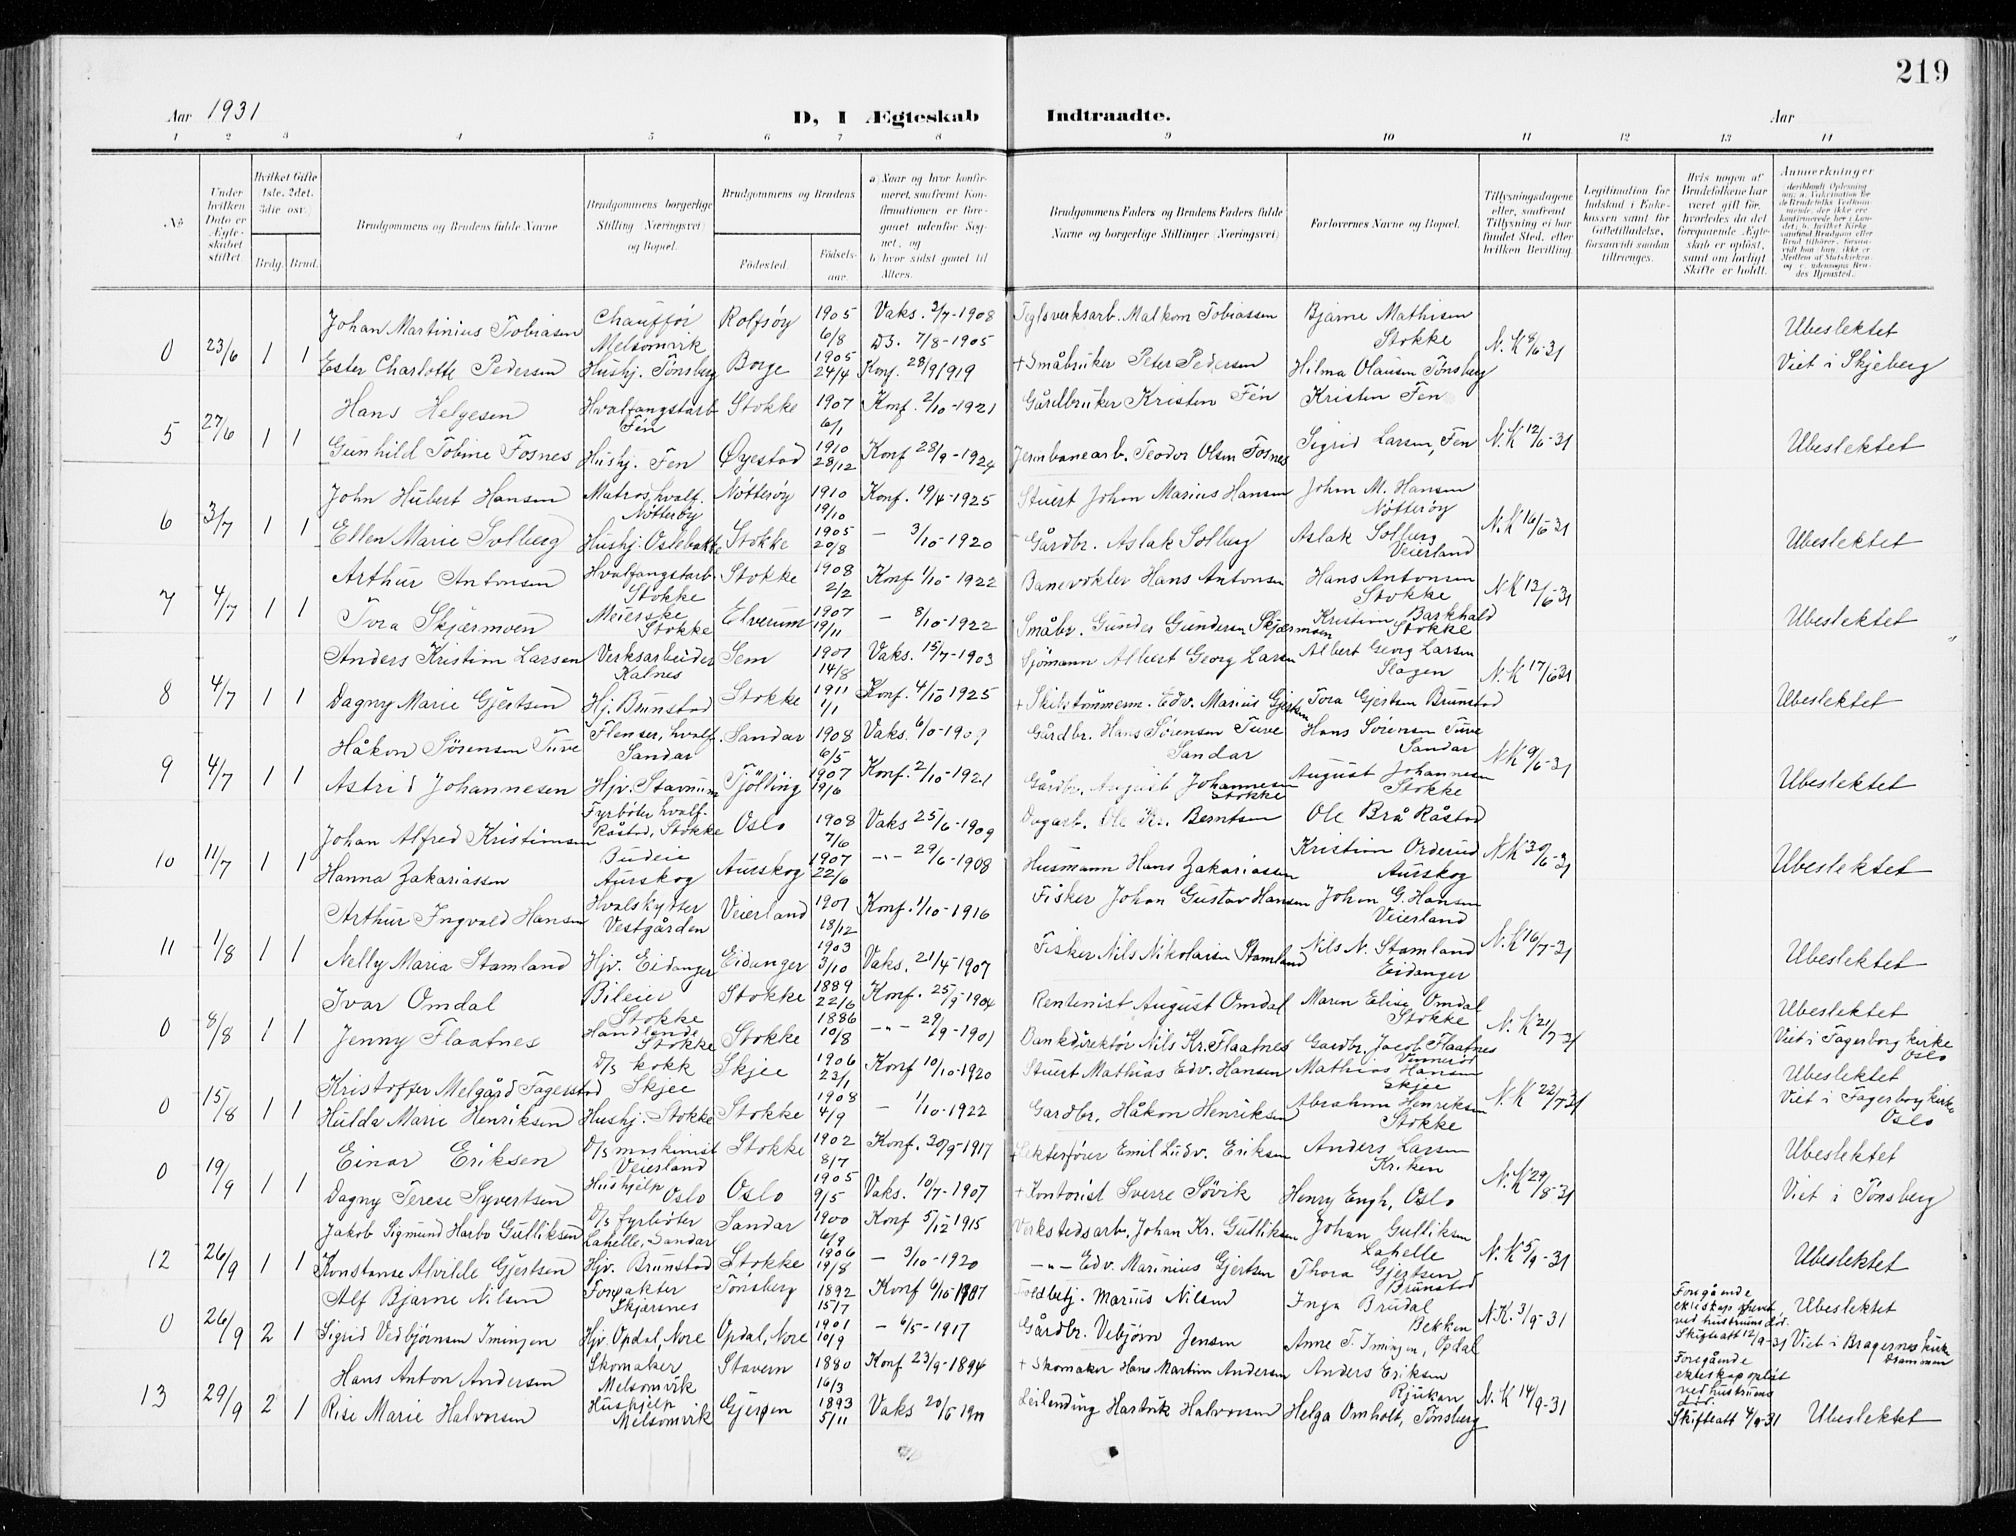 219
Aar 1931 D, I Ægteskab Indtraadte. Aar
1 2 3 4 5 6 7 8 9 10 11 12 13 14
No
Under hvilken Dato er Ægteskabet stiftet
Hvilket Gifte 1ste, 2det, 3die osv.)
Brdg. Brud.
Brudgommens og Brudens fulde Navne
Brudgommens borgerlige Stilling (Næringsvei) og Bopæl.
Brudgommens og Brudens
Fødested. Fødselsaar.
a) Naar og hvor konfirmeret, saafremt Konfirmationen er foregaaet udenfor Sognet, og
b) hvor sidst gaaet til Alters.
Brudgommens Faders og Brudens Faders fulde Navne og borgerlige Stillinger (Næringsvei)
Forlovernes Navne og Bopæl.
Tillysningsdagene eller, saafremt Tillysning ei har fundet Sted, efter hvilken Bevilling
Legitimation for Indskud i Enkekassen samt for Giftetilladelse, forsaavidt saadan tiltrænges.
Hvis nogen af Brudefolkene har været gift før, hvorledes da det foregaaende Ægteskab er opløst, samt om lovligt Skifte er holdt.
Anmerkninger
0 23/6 1 1 Johan Martinius Tobiasen Chauffør Melsomvik Rolfsøy 1905 6/8 Vaks. 2/7-1908 D3. 7/8-1905 Teglverksarb. Malkom Tobiassen Bjarne Mathisen Stokke N.K 8/6-31 Ubeslektet
Ester Charlotte Pedersen Hushj. Tønsberg Borge 1905 24/4 Konf. 28/9 1919 + Småbruker Peter Pedersen Hilma Olausen Tønsberg Viet i Skjeberg
5 27/6 1 1 Hans Helgesen Hvalfangstarb Fén Stokke 1907 6/1 Konf. 2/10-1921 Gårdbruker Kristen Fén Kristen Fen N.K 12/6-31 Ubeslektet
Gunhild Tobine Fosnes Hushj. Fen Øyestad 1910 28/12 Konf 28/9-1924 Jernbanearb. Teodor Olsen Fosnes Sigrid Larsen, Fen
6 3/7 1 1 John Hubert Hansen Matros, hvalf. Nøtterøy Nøtterøy 1910 19/10 Konf. 19/4-1925 Stuert Johan Marius Hansen John M. Hansen Nøtterøy N.K 16/6-31 Ubeslektet
Ellen Marie Solberg Hushj. Oslebakke Stokke 1905 20/8 - 3/10-1920 Gårdbr. Aslak Solberg Aslak Solberg Veierland
7 4/7 1 1 Arthur Antonsen Hvalfangstarb. Stokke Stokke 1908 2/2 Konf 1/10-1922 Banevokter Hans Antonsen Hans Antonsen Stokke N.K 13/6-31 Ubeslektet
Tora Skjærmoen Meierske Stokke Elverum 1907 19/11 - 8/10-1922 Småbr. Gunder Gundersen Skjærmoen Kristian Barkhald Stokke
8 4/7 1 1 Anders Kristian Larsen Verksarbeider Kalnes Sem 1901 14/8 Vaks. 15/7-1903 Sjömann Albert Georg Larsen Albert Georg Larsen Slagen N.K 17/6 31 Ubeslektet
Dagny Marie Gjertsen Hj. Brunstad Stokke 1911 1/1 Konf. 4/10-1925 + Skibstömmerm. Edv. Marius Gjertsen Tora Gjertsen Brunstad
9 4/7 1 1 Håkon Sörensen Tuve Flenser, hvalf. Sandar Sandar 1908 6/5 Vaks. 6/10-1909 Gårdbr. Hans Sörensen Tuve Sandar Hans Sörensen Tuve Sandar N.K 9/6-31 Ubeslektet
Astrid Johannesen Hjv. Stavnum Tjölling 1907 19/6 Konf. 2/10-1921 Gårdbr. August Johannesen Stokke August Johannesen Stokke
10 11/7 1 1 Johan Alfred Kristiansen Fyrböter hvalf. Råstad, Stokke Oslo 1908 7/6 Vaks 25/6-1909 Dagarb. Ole Kr. Berntsen Ole Brå Råstad N.K 30/6-31 Ubeslektet
Hanna Zakariassen Budeie Aurskog Aurskog 1907 22/6 -"- 29/6-1908 Husmann Hans Zakariassen Kristian Orderud Aurskog
11 1/8 1 1 Arthur Ingvald Hansen Hvalskytter Vestgården Veierland 1901 18/12 Konf. 1/10-1916 Fisker Johan Gustav Hansen Johan G. Hansen Veierland N.K 16/7-31 Ubeslektet
Nelly Maria Stamland Hjv. Eidanger Eidanger 1903 3/10 Vaks. 21/4-1907 Fisker Nils Nikolaisen Stamland Nils N. Stamland Eidanger
0 8/8 1 1 Ivar Omdal Bileier Stokke Stokke 1889 22/6 Konf. 25/9-1904 Rentenist August Omdal Maren Elise Omdal Stokke N.K 21/7-31 Ubeslektet
Jenny Flaatnes Handlende Stokke Stokke 1886 10/8 -"- 29/9-1901 Bankdirektør Nils Kr. Flaatnes Gardbr. Jacob Flaatnes Vennerød Viet i Fagerborg kirke Oslo
0 15/8 1 1 Kristoffer Melgård Fagerstad D/s kokk Skjee Skjee 1906 23/1 Konf 10/10-1920 Stuert Mathias Edv. Hansen Mathias Hansen Skjee N.K 22/7-31 Ubeslektet
Hulda Marie Henriksen Hushj. Stokke Stokke 1908 4/9 - 1/10-1922 Gardbr. Håkon Henriksen Abraham Henriksen Stokke Viet i Fagerborg kirke Oslo
0 19/9 1 1 Einar Eriksen D/s maskinist Veierland Stokke 1902 8/7 Konf. 30/9-1917 Lekterfører Emil Ludv. Eriksen Anders Larsen Kriken N.K 29/8-31 Ubeslektet
Dagny Terese Syvertsen Hushjelp Oslo Oslo 1905 9/5 Vaks. 10/7-1907 + Kontorist Sverre Sövik Henry Engh, Oslo Viet i Tønsberg
12 26/9 1 1 Jakob Sigmund Harbo Gulliksen D/s fyrböter Lahelle, Sandar Sandar 1900 6/9 Konf 5/12 1915 Verkstedsarb. Johan Kr. Gulliksen Johan Gulliksen Lahelle N.K 5/9-31 Ubeslektet
Konstanse Alvilde Gjertsen Hjv. Brunstad Stokke 1906 19/8 - 3/10-1920 -"- Edv. Marinius Gjertsen Thora Gjertsen Brunstad
0 26/9 2 1 Alf Bjarne Nilsen Forpakter Skjærsnes Tönsberg 1892 15/7 Konf 6/10-1907 Toldbetj. Marius Nilsen Inga Brudal Bekken N.K. 3/9-31 Foregående ekteskap hevet ved hustruens död. Skifteatt 12/9-31 Ubeslektet
Sigrid Vedbjørnsen Imingen Hjv Opdal, Nore Opdal, Nore 1901 10/9 - 6/5-1917 Gårdbr. Vebjörn Jensen Anne T. Imingen, Opdal Viet i Bragernes kirke Drammen
13 29/9 2 1 Hans Anton Andersen Skomaker Melsomvik Stavern 1880 16/3 Konf 23/9-1894 + Skomaker Hans Martin Andersen Anders Eriksen Rjukan N.K 14/9-31 Foregående ekteskap opløst ved hustruens död. Skifteatt 4/9-31 Ubeslektet
Rise Marie Halvorsen Hushjelp Melsomvik Gjerpen 1893 5/11 Vaks 20/6 1900 Leilending Hartvik Halvorsen Helga Omholt, Tønsberg